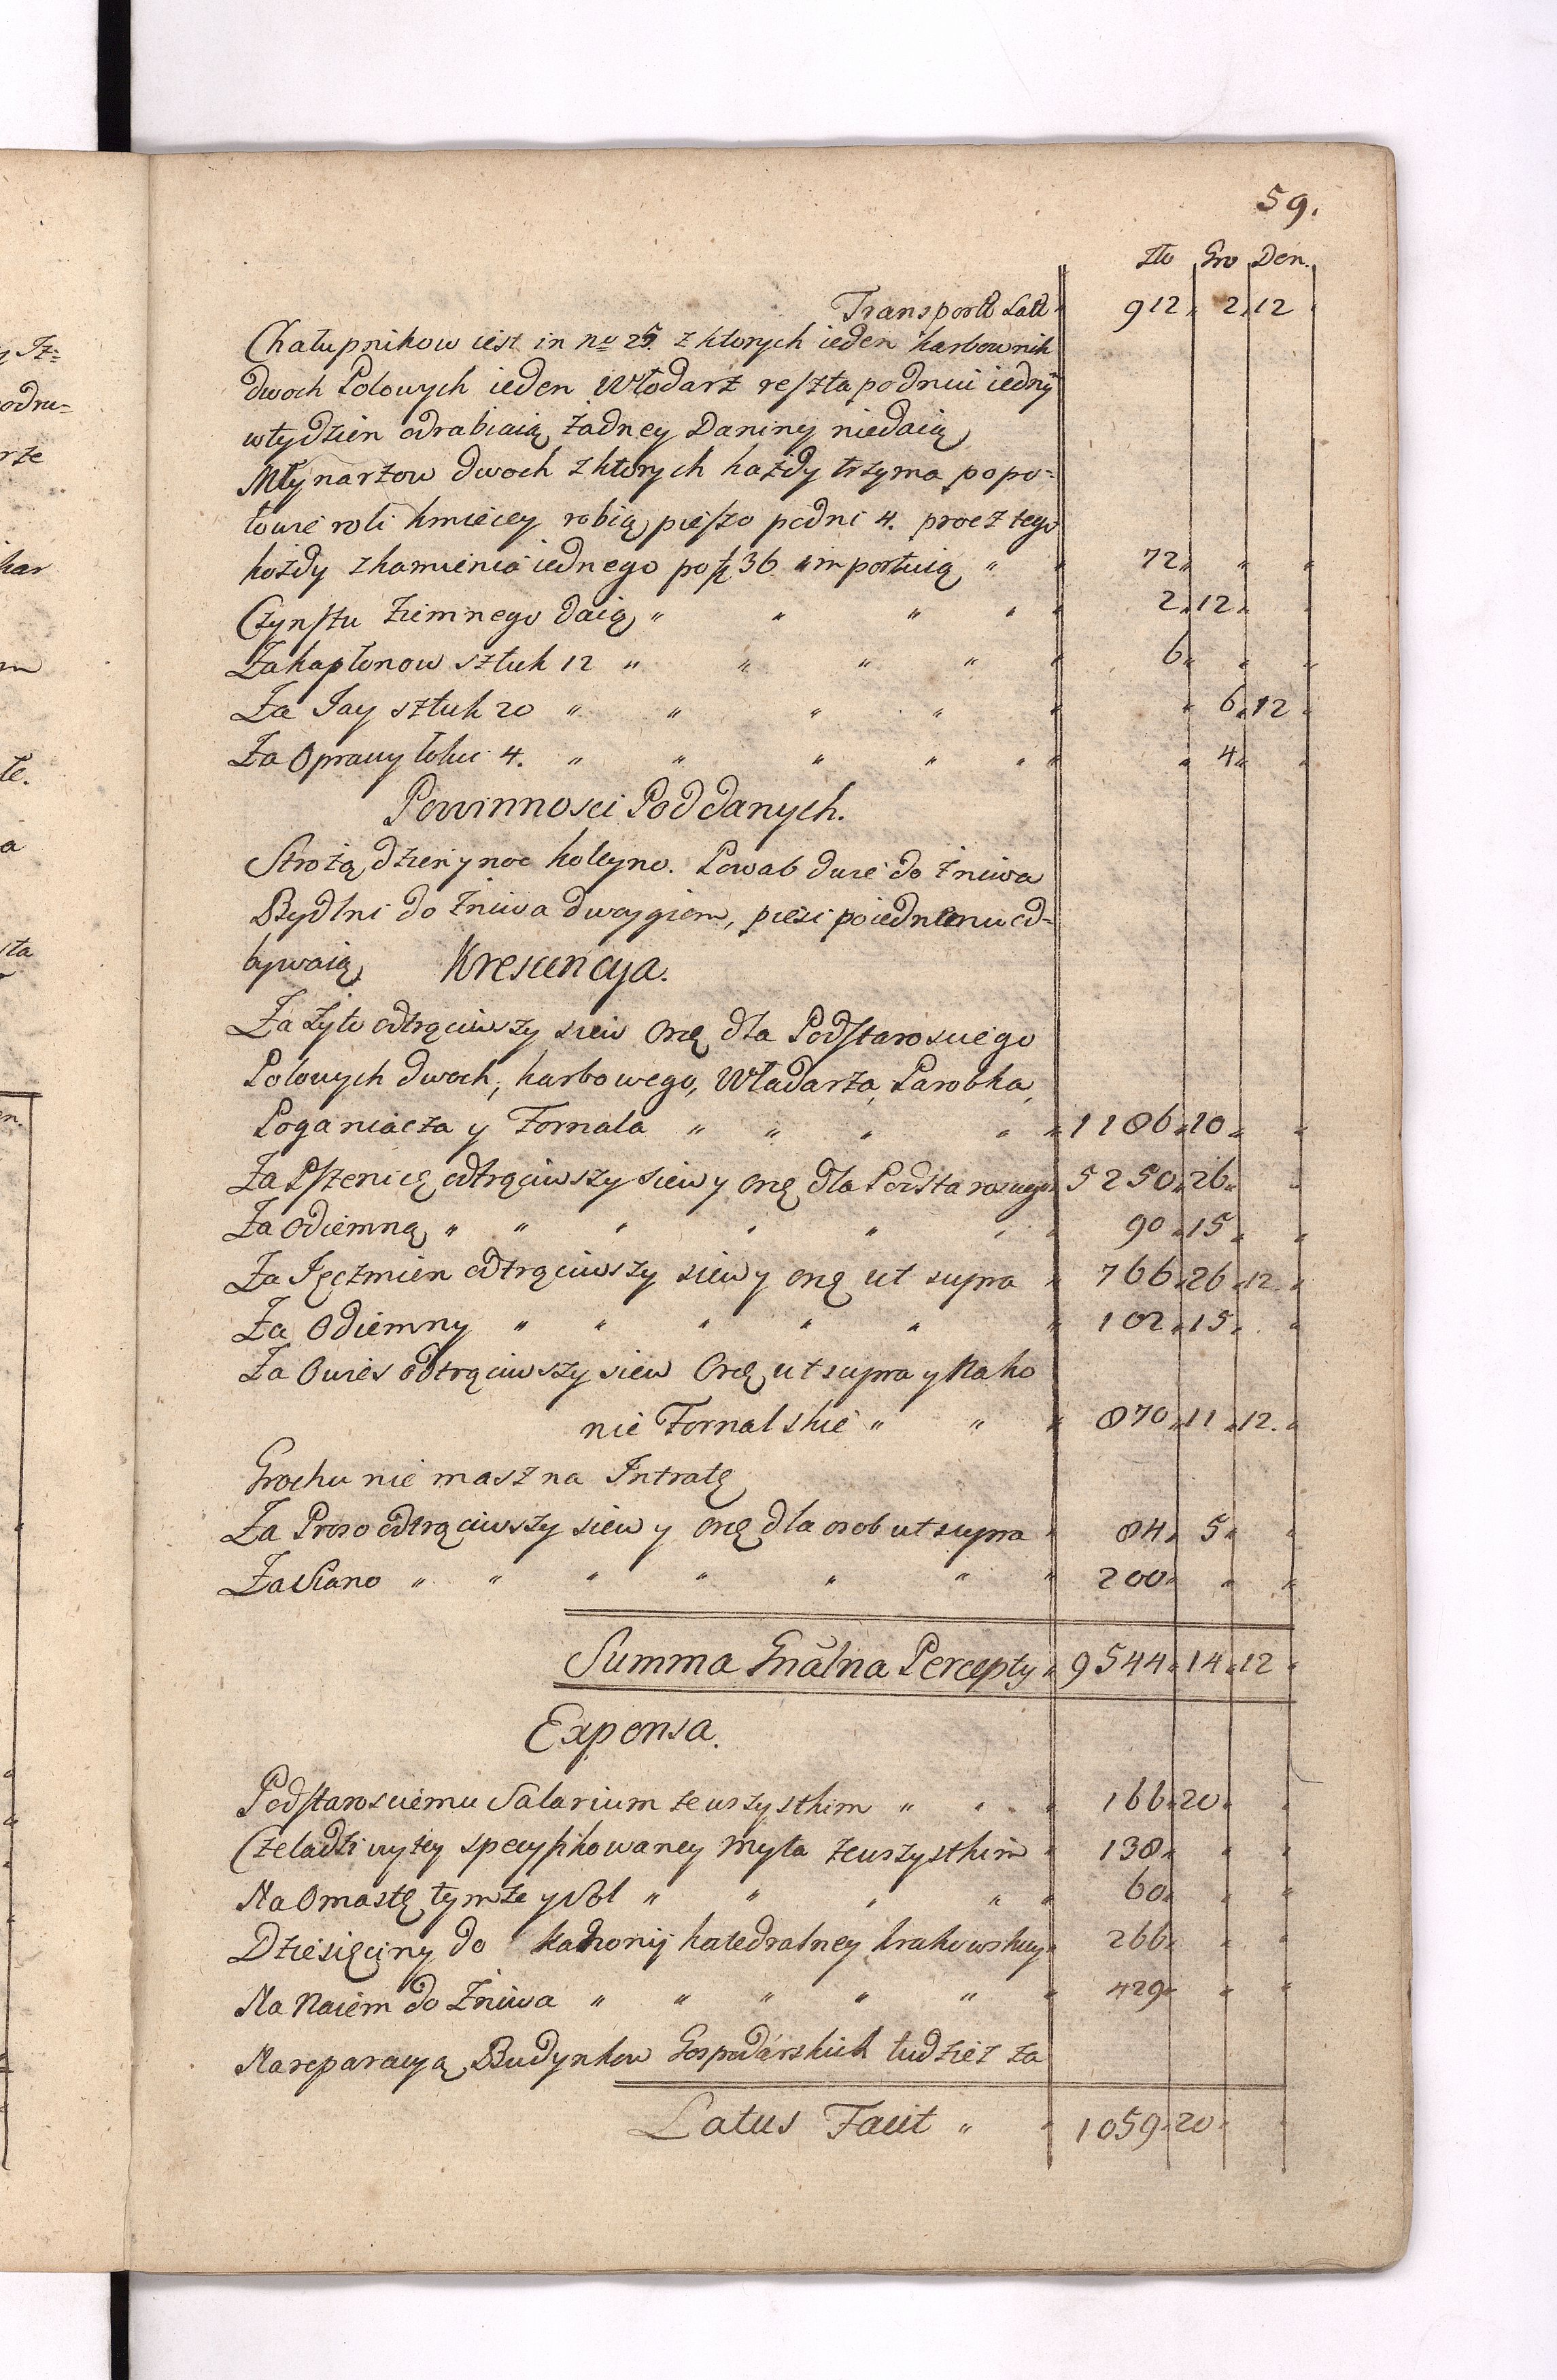 59.
Zło Gro Den.
Transport Lat 912 2 12
Chałupnikow iest in nro 25. z ktorych ieden karbownik
dwoch Polowych ieden Włodarz reszta podniu iednÿ
wtydzien odrabiaią żadney Daniny niedaią
Młynarzow dwoch zktorych każdy trzyma popo=
łowie roli kmiecey robią pieszo podni 4. procz tego
kożdy zkamienia iednego po zł 36 importuią " 72
Czynszu Ziemnego daią " 2 12
Zakapłonow sztuk 12 " 6
Za Jay sztuk 20 " 6 12
Za Oprawy łokci 4. " 4
Powinnosci Poddanych.
Strożą dzien y noc koleyno. Powab dwie do żniwa
Bydlni do żniwa dwoygiem, piesi poiednemu od=
bywaią Krescencya.
Za żyto odtrąciwszy siew Orą dla Podstarosciego
Polowych dwoch, karbowego, Władarza, Parobka,
Poganiacza y Fornala " 1186 10
Za Pszenicę odtrąciwszy siew y orą dla Podstarosciego 5250 26
Za Odiemną " 90 15
Za Jęczmien odtrąciwszy siew y orą ut supra 766 26 12
Za Odiemny " 102 15
Za Owies odtrąciwszy siew Orą ut supra y Nako
nie Fornalskie " 870 11 12.
Grochu nie masz na Intratę
Za Proso odtrąciwszy siew y orą dla osob ut supra 84 5
Za Siano " 200
Summa Gnalna Percepty 9544 14 12
Expensa.
Podstarosciemu Salarium zewszystkim " 166 20
Czeladzi wyżey specyfikowaney Myta zewszystkim 138
Na Omastę tymże y Sol " 60
Dziesięciny do Kanonij katedralney krakowskiey 266
Na Naiem do Żniwa " 429
Na reparacyą Budynkow Gospodarskich tudzież za
Latus Facit " 1059 20